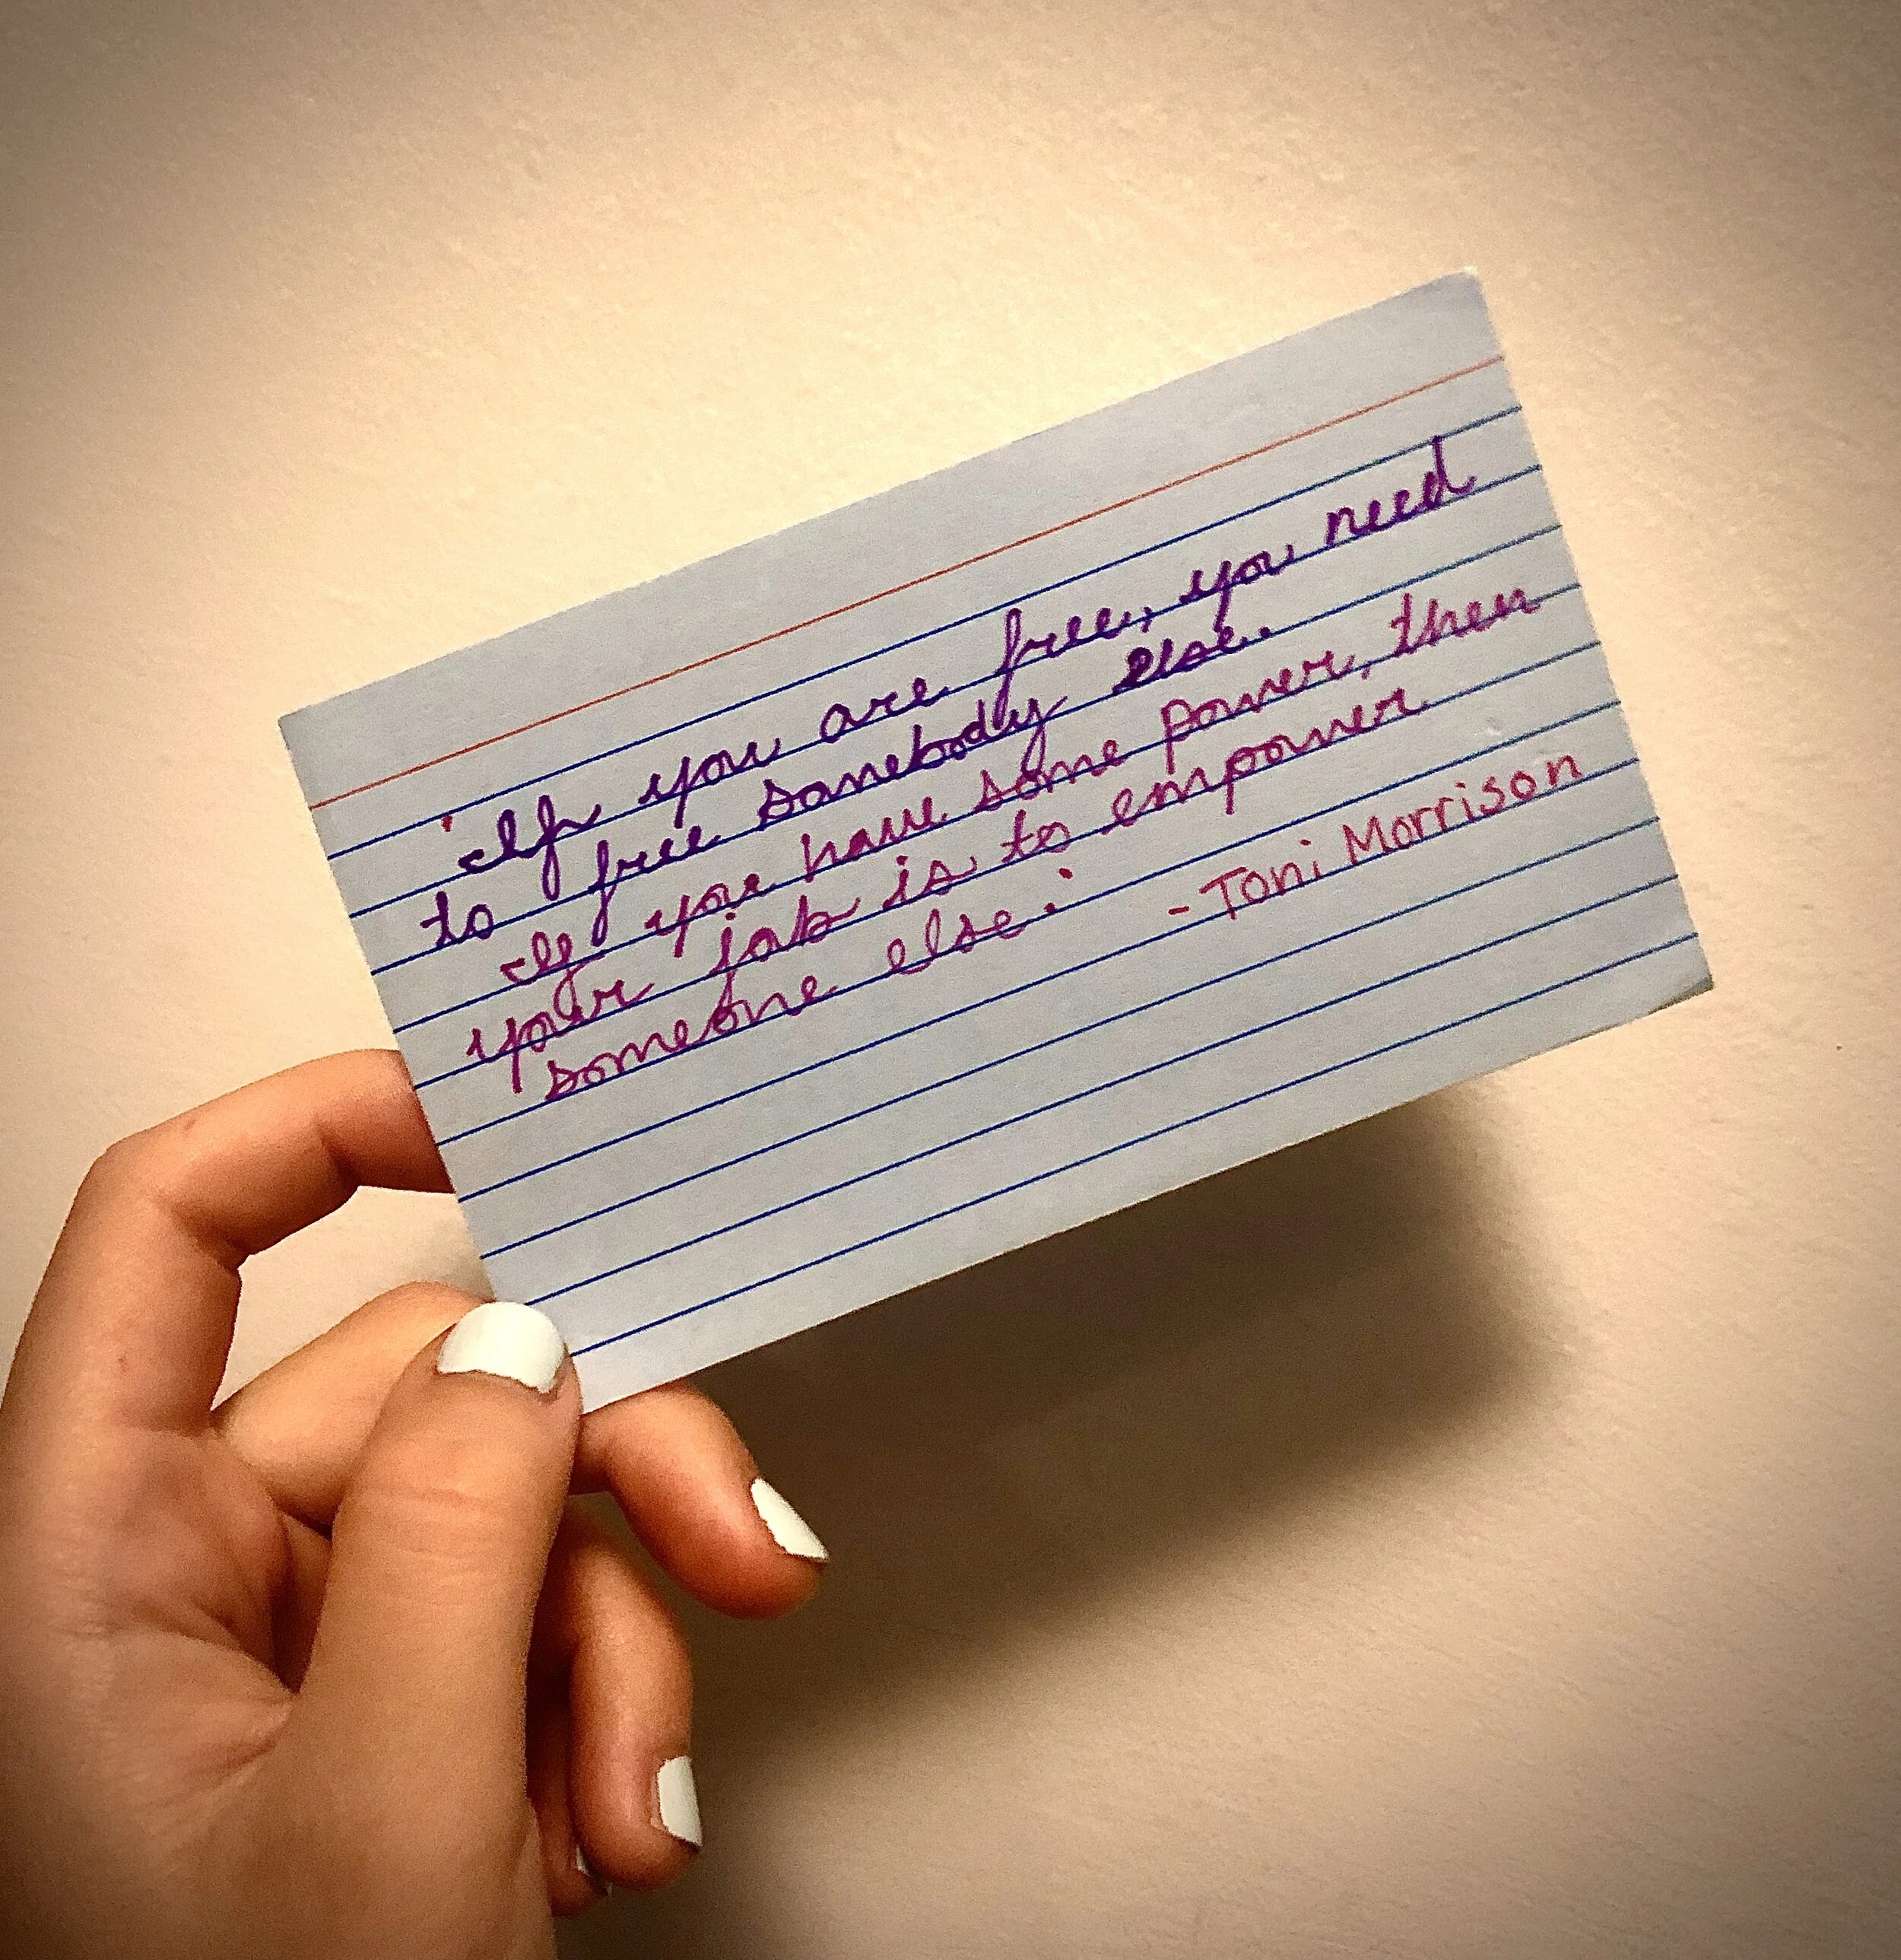 'If you are free, you need
to free somebody else.
If you have some power, then
your job is to empower
someone else.'
-Toni Morrison